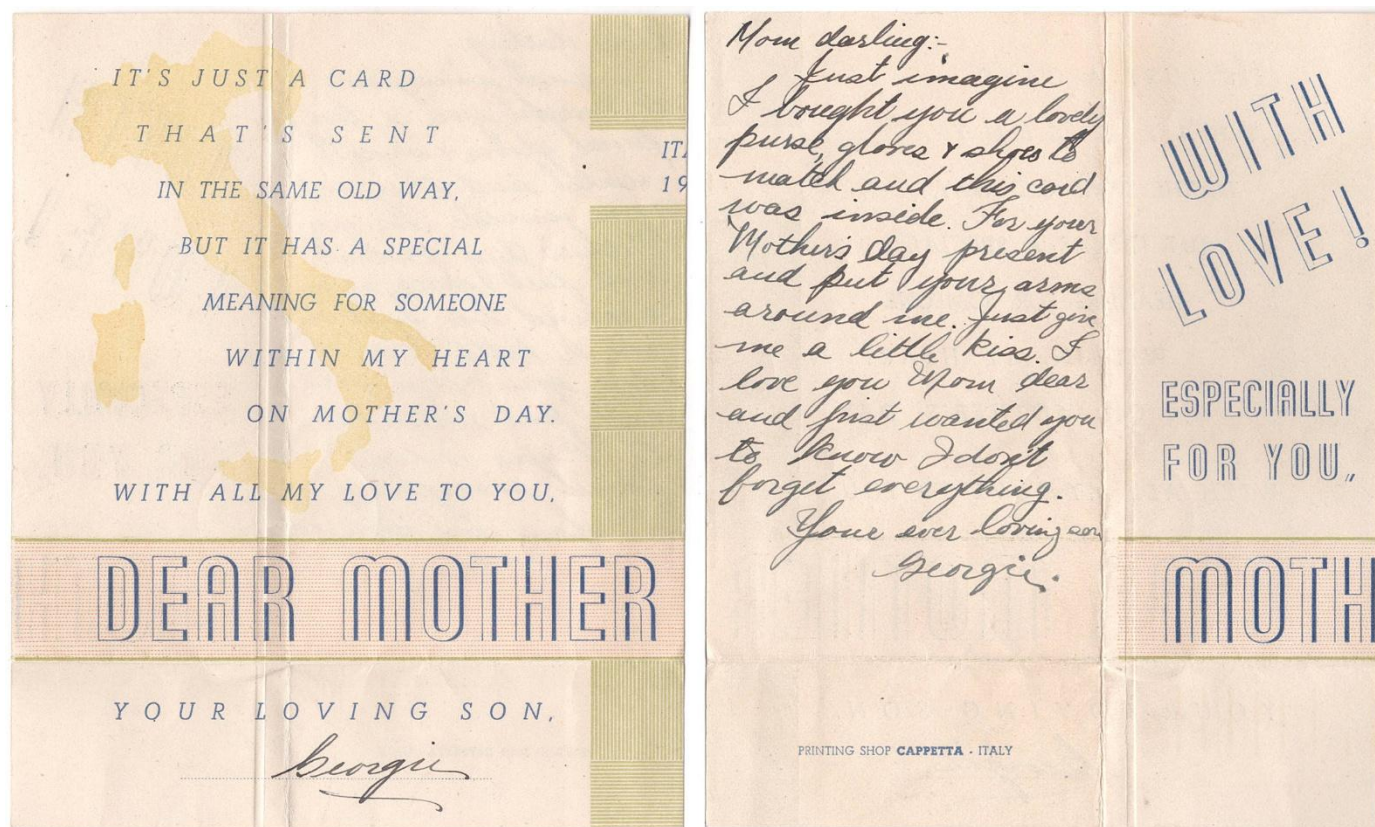 IT'S JUST A CARD
THAT'S SENT
IN THE SAME OLD WAY,
BUT IT HAS A SPECIAL
MEANING FOR SOMEONE
WITHIN MY HEART
ON MOTHER'S DAY.
WITH ALL MY LOVE TO YOU,
DEAR MOTHER
YOUR LOVING SON,
Georgie
ITA
19
Mom darling:-
Just imagine
I bought you a lovely
purse, gloves & shoes to
match and this card
was inside. For your
Mother's day present
and put your arms
around me. Just give
me a little kiss. I
love you Mom dear
and just wanted you
to know I don't
forget everything.
Your ever loving son
Georgie.
PRINTING SHOP CAPPETTA - ITALY
WITH
LOVE!
ESPECIALLY
FOR YOU,,
MOTH